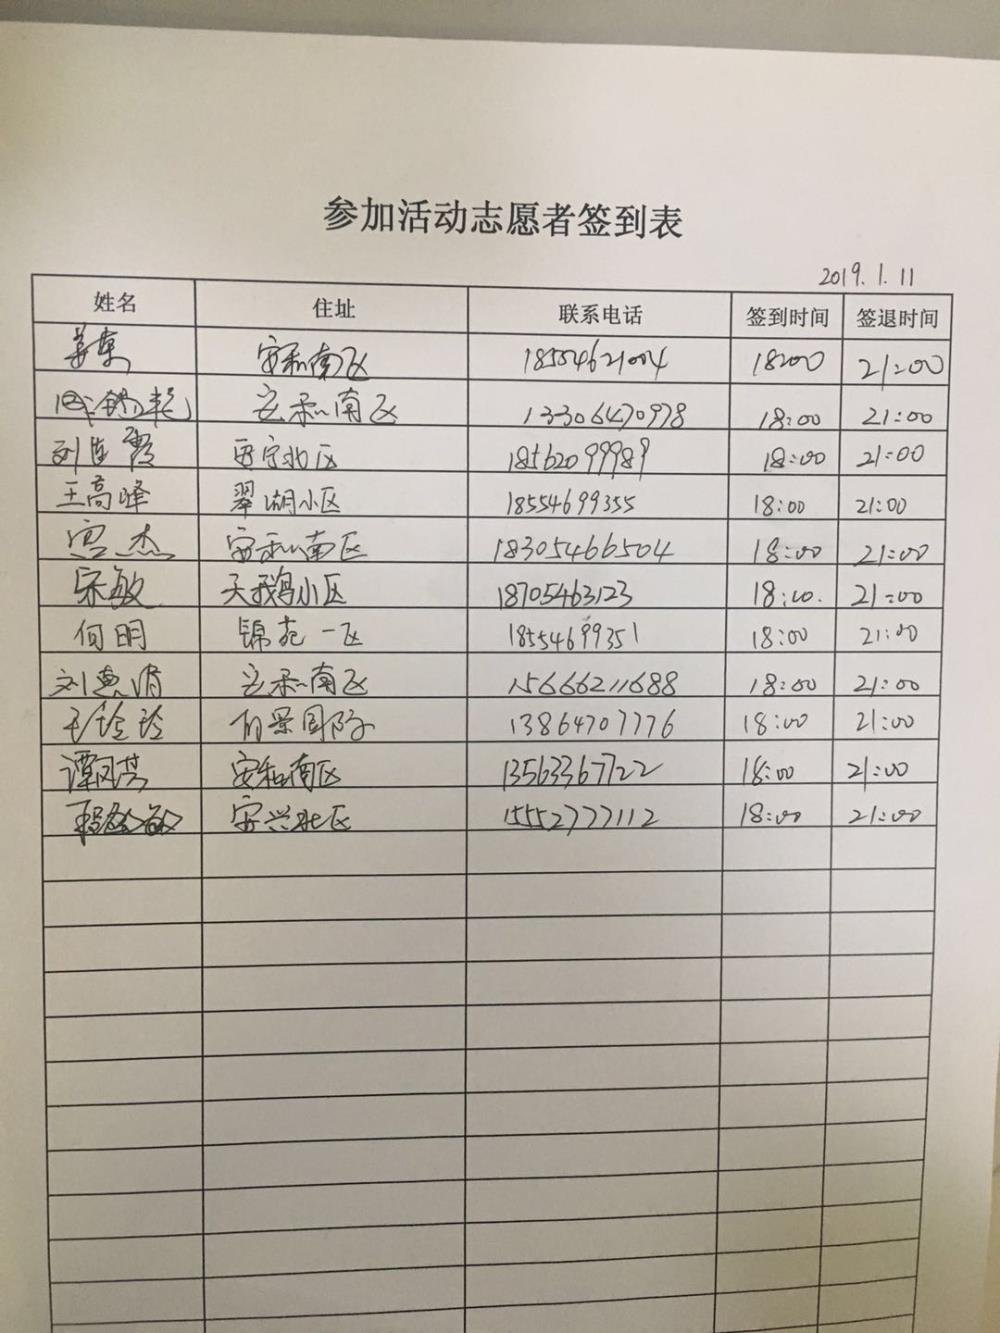 参加活动志愿者签到表
2019.1.11
姓名 住址 联系电话 签到时间 签退时间
姜东 安和南区 18554621004 18:00 21:00
安和南区 13306470978 18:00 21:00
刘连霞 西宁北区 18562099989 18:00 21:00
王高峰 翠湖小区 18554699355 18:00 21:00
宫杰 安和南区 18305466504 18:00 21:00
宋敏 天鹅小区 18705463123 18:00. 21:00
何明 锦苑一区 18554699351 18:00 21:00
刘惠娟 安和南区 15666211688 18:00 21:00
王玲玲 国际 13864707776 18:00 21:00
谭凤芸 安和南区 13563367722 18:00 21:00
敏 安兴北区 15552777112 18:00 21:00